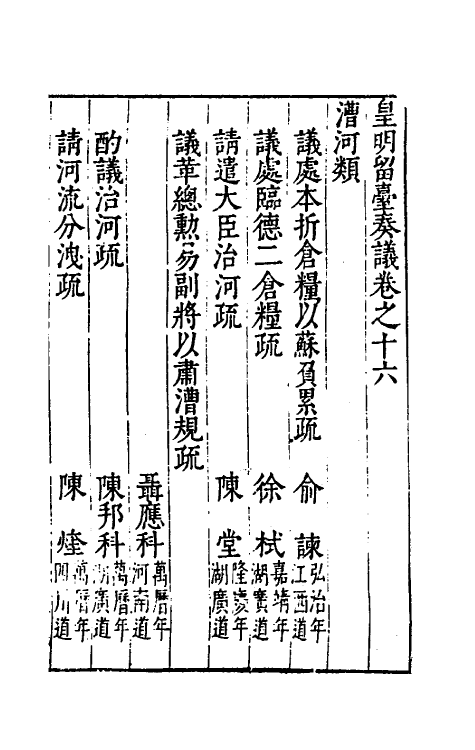 皇明留臺奏議卷之十六
漕河類
議處本折倉糧以蘇負累疏 俞諫 弘治年 江西道
議處臨德二倉糧疏 徐栻 嘉靖年 湖廣道
請遣大臣治河疏 陳堂 隆慶年 湖廣道
議革總勲易副將以肅漕規疏
聶應科 萬曆年 河南道
酌議治河疏 陳邦科 萬曆年 湖廣道
請河流分洩疏 陳煃 萬曆年 四川道